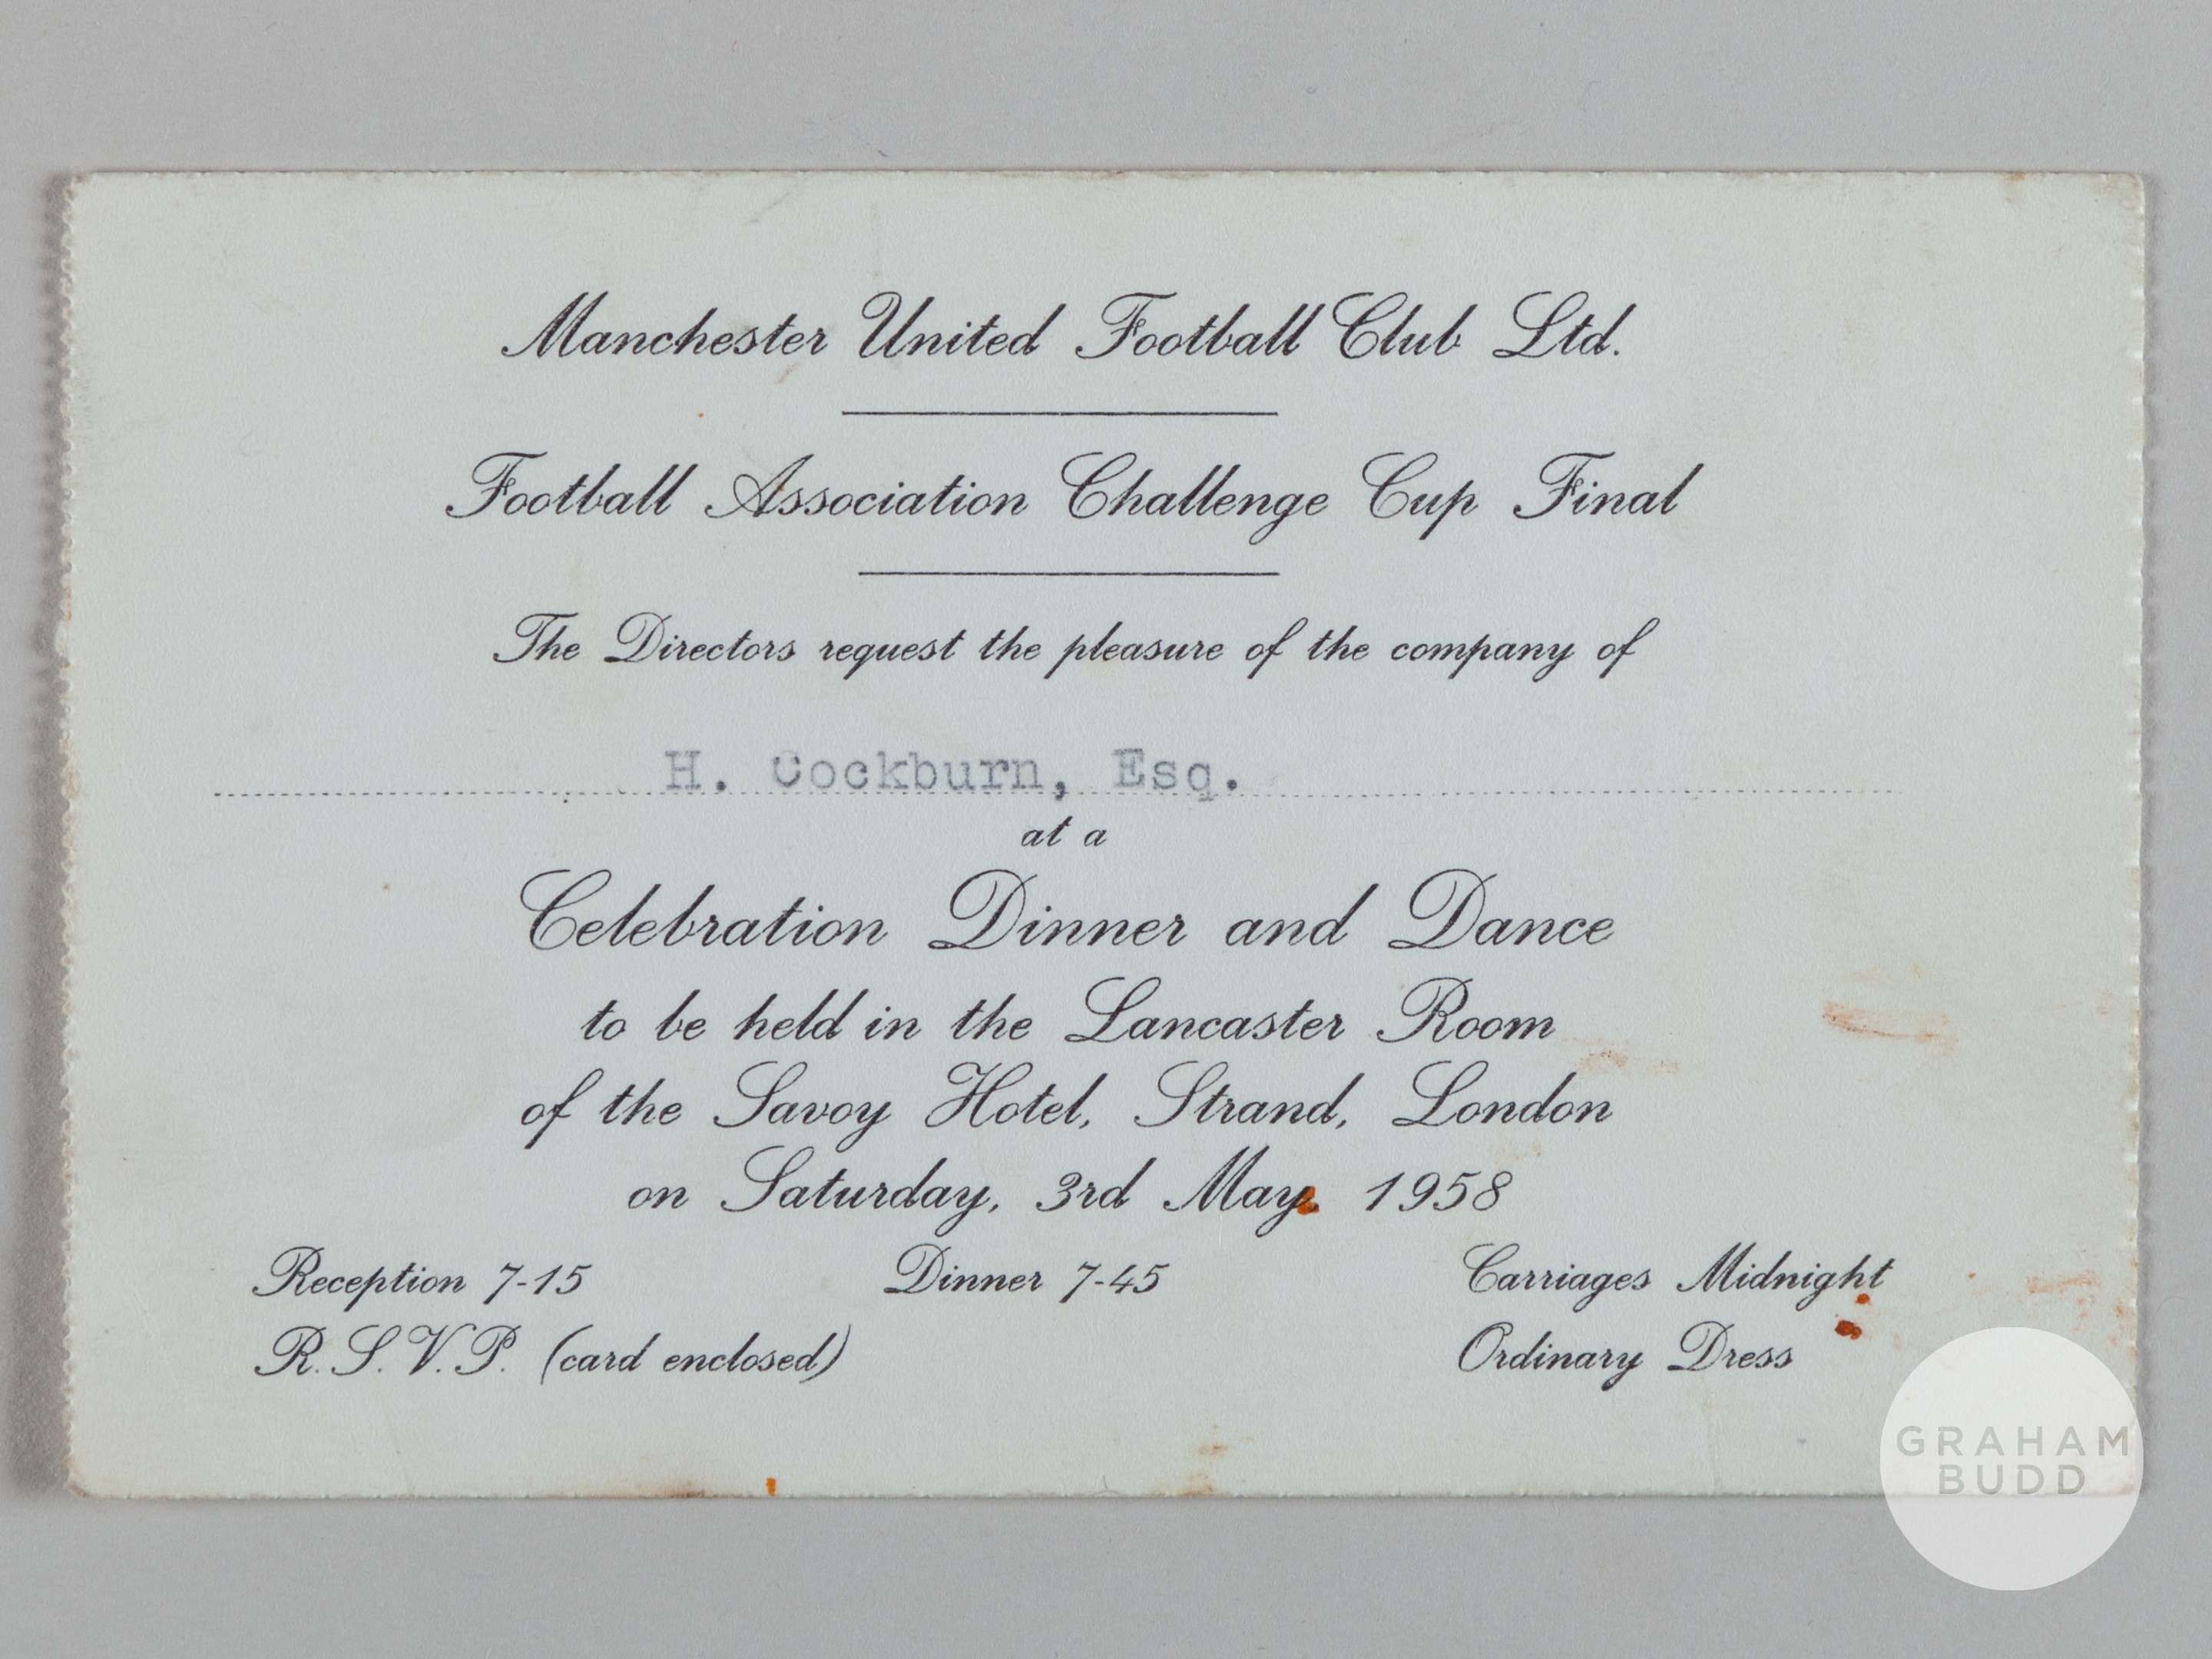 Manchester United Football Club Ltd.
Football Association Challenge Cup Final
The Directors request the pleasure of the company of
H. Cockburn, Esq.
at a
Celebration Dinner and Dance
to be held in the Lancaster Room
of the Savoy Hotel, Strand, London
on Saturday, 3rd May, 1958
Reception 7-15 Dinner 7-45 Carriages Midnight
R.S.V.P. (card enclosed) Ordinary Dress
GRAHAM
BUDD